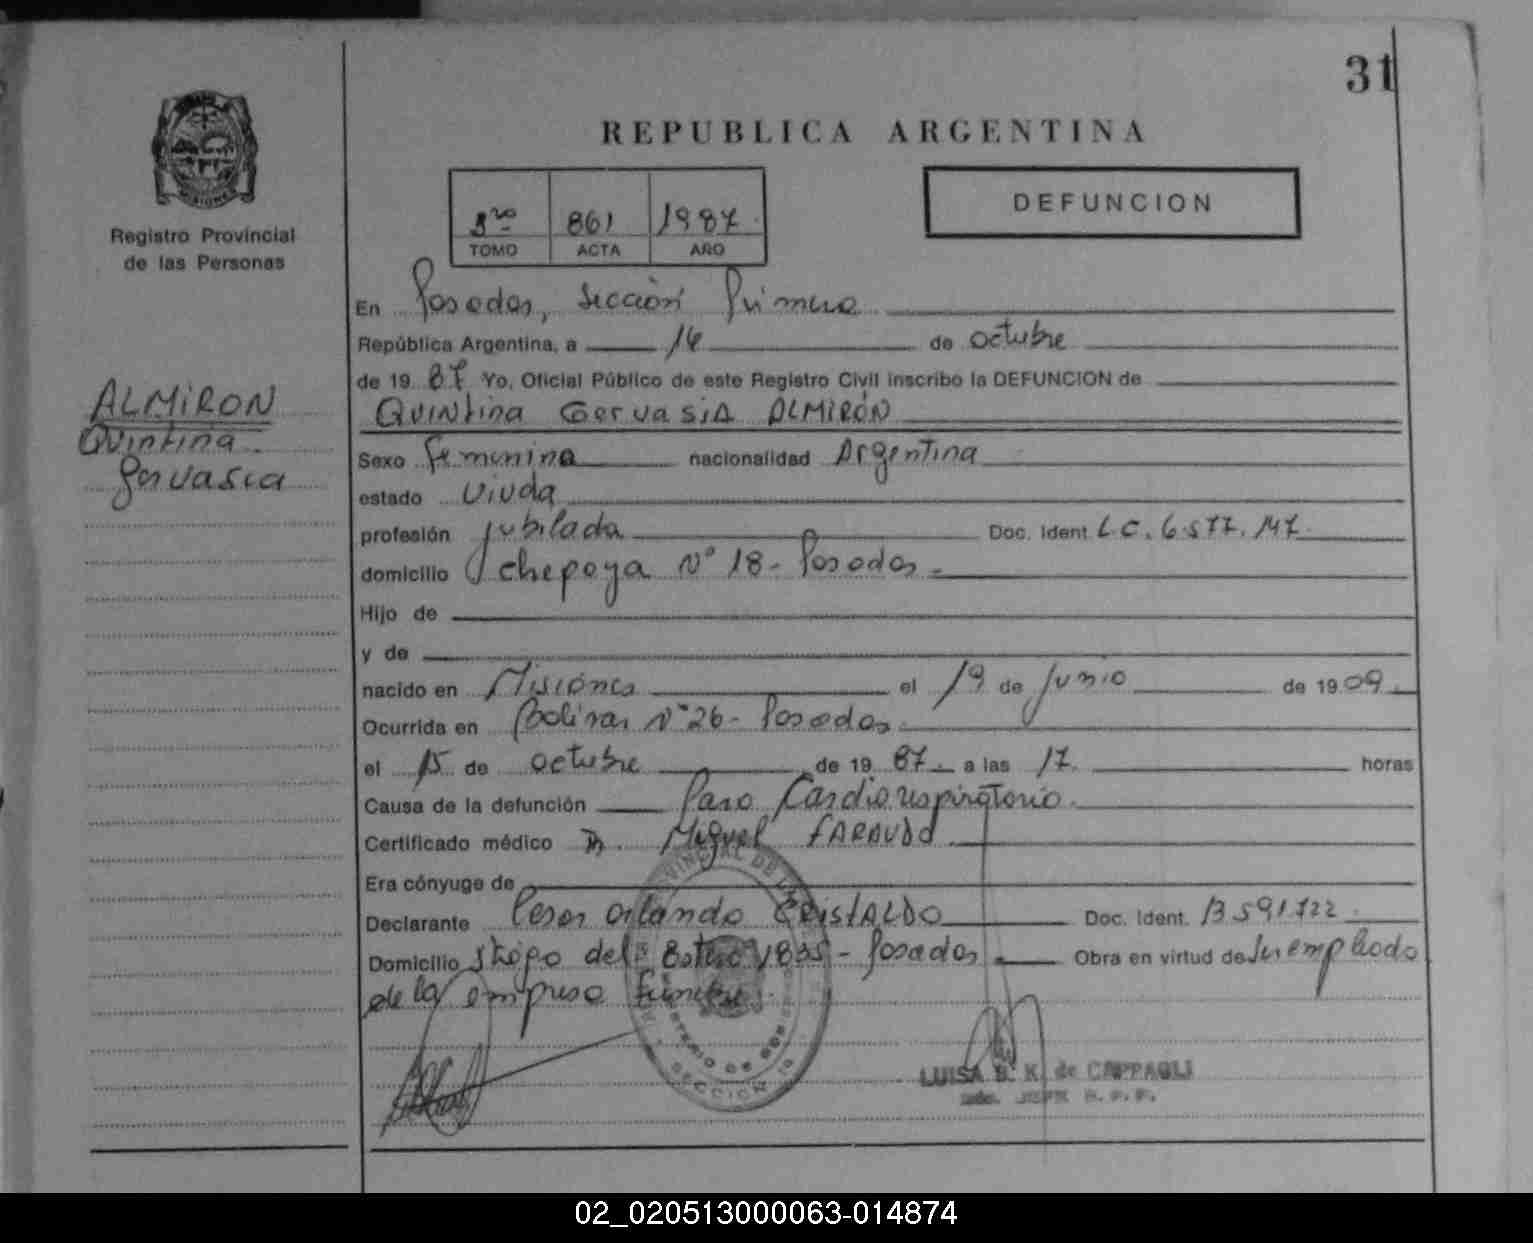 31
REPUBLICA ARGENTINA
Registro Provincial
de las Personas
3ro 861 1987
TOMO ACTA AÑO
DEFUNCION
En Posadas, Sección Primera
República Argentina, a 16 de octubre
de 19 87 Yo, Oficial Público de este Registro Civil inscribo la DEFUNCION de
Quintina Gervasia ALMIRÓN
ALMIRON
Quintina
Gervasia
Sexo femenina nacionalidad Argentina
estado viuda
profesión jubilada Doc. Ident. L.C. 6.577.147
domicilio chepoya Nº 18 - Posadas
Hijo de
y de
nacido en Misiones el 19 de junio de 19 09
Ocurrida en Bolivar Nº 26 - Posadas
el 15 de octubre de 19 87 a las 17 horas
Causa de la defunción Paro Cardiorespiratorio
Certificado médico Dr. Miguel FARAUDO
Era cónyuge de
Declarante Cesar Orlando CRISTALDO Doc. Ident. 13.591.722
Domicilio Stgo del Estero 1835 - Posadas Obra en virtud de Ser empleado
de la empresa funebre
LUISA B. K. de CAPPAGLI
SECCION 1a
02_020513000063-014874